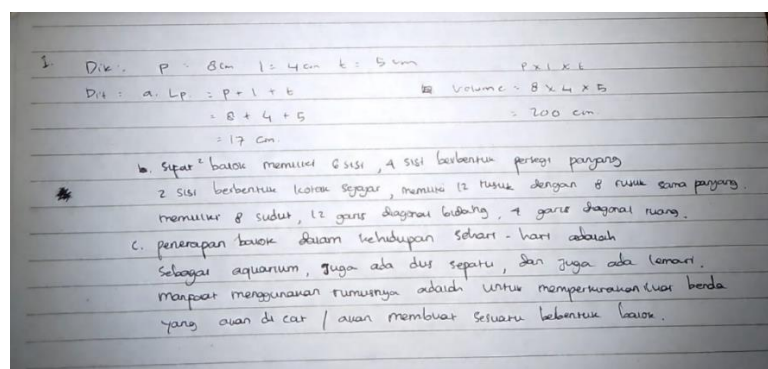 1. Dik : p = 8 cm l = 4 cm t = 5 cm p x l x t
Dit : a. Lp = p + l + t Volume = 8 x 4 x 5
= 8 + 4 + 5 = 200 cm
= 17 cm
b. Sifat² balok memiliki 6 sisi, 4 sisi berbentuk persegi panjang
2 sisi berbentuk kotak sejajar, memiliki 12 rusuk dengan 8 rusuk sama panjang.
memiliki 8 sudut, 12 garis diagonal bidang, 4 garis diagonal ruang.
c. penerapan balok dalam kehidupan sehari-hari adalah
sebagai aquarium, juga ada dus sepatu, dan juga ada lemari.
manpaat menggunakan rumusnya adalah untuk memperkirakan luar benda
yang akan di cat / akan membuat sesuatu bebentuk balok.